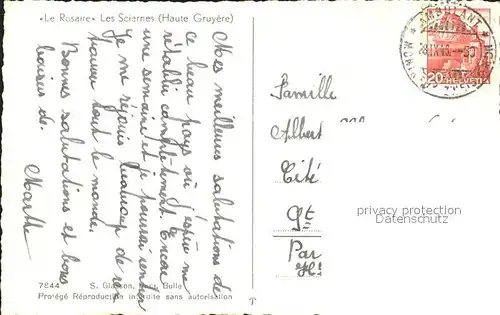 «Le Rosaire» Les Sciernes (Haute Gruyère)
Mes meilleures salutations de
ce beau pays où j'espère me
rétablir complètement. Encore
une semaine et je pourrai rentrer
Je me réjouis beaucoup de
trouver tout le monde.
Bonnes salutations et bons
baisers de.
Marthe
7644
S. Glasson, Bulle
Protégé Réproduction interdite sans autorisation
AMBULANT
20 HELVETIA
Famille
Albert
Cité
Gt
Par
privacy protection
Datenschutz